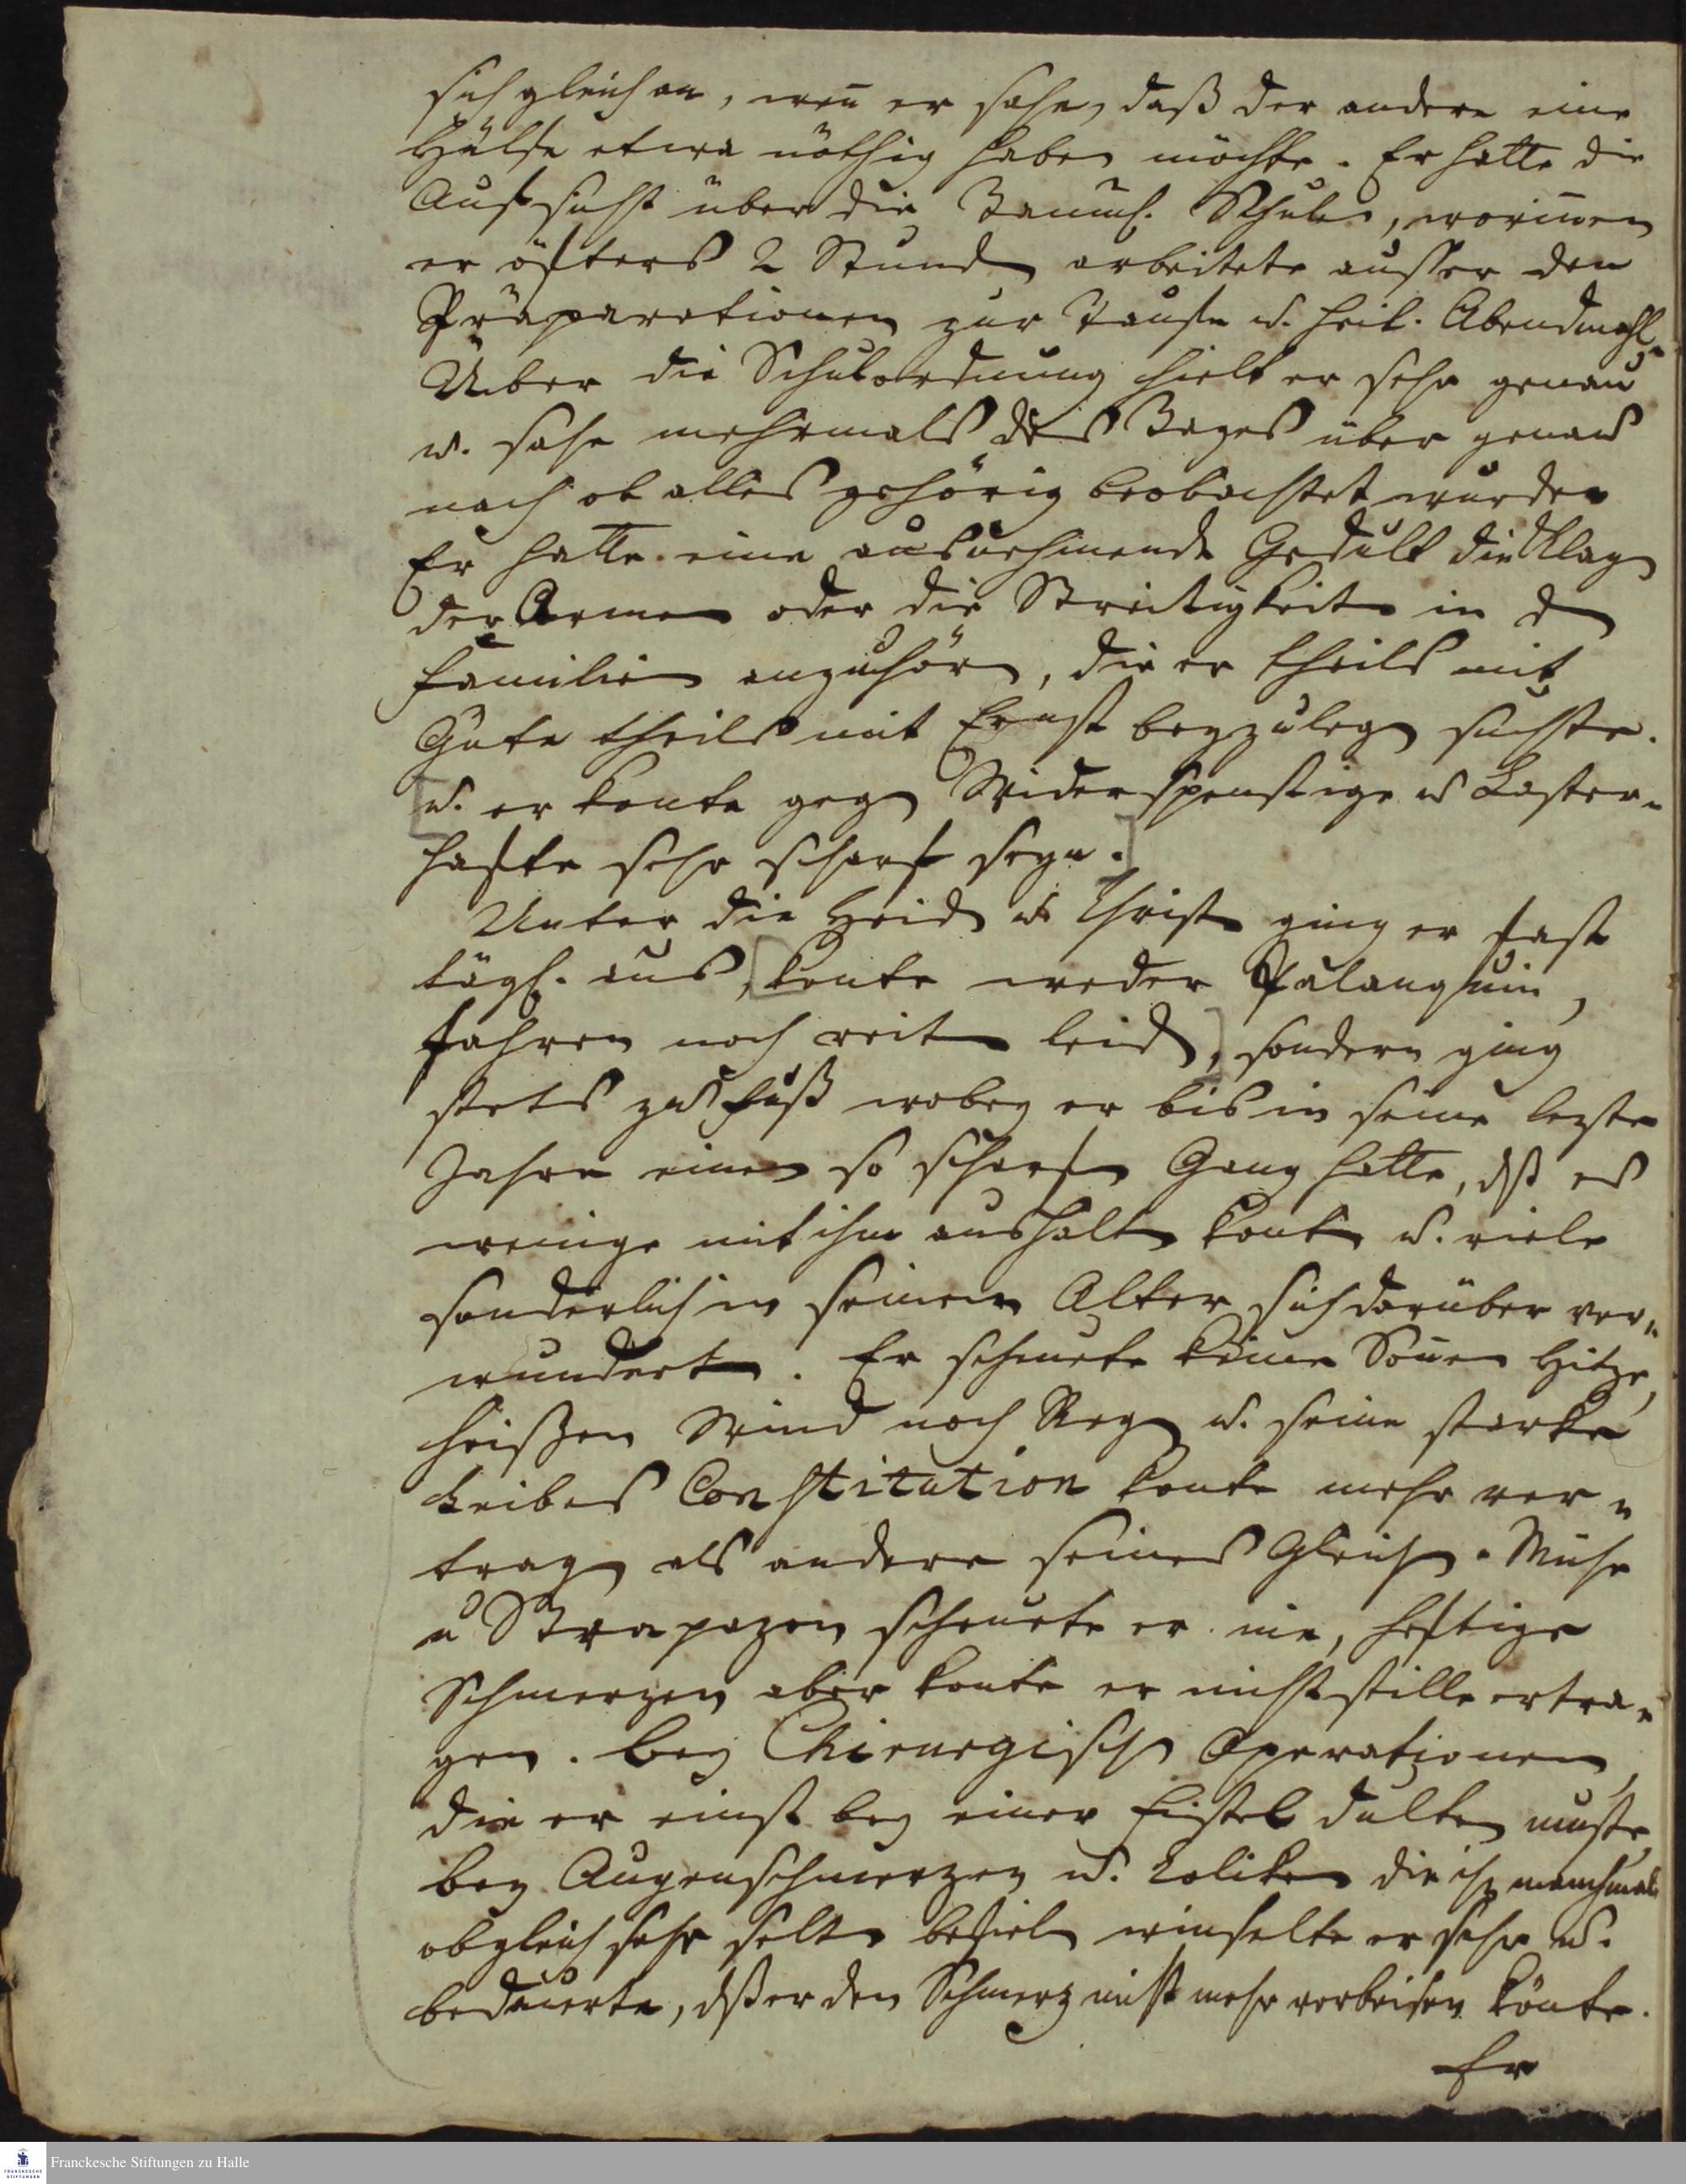 sich gleich an, weñ er sahe, daß der andere eine
Hülfe etwa nöthig haben möchte. Er hatte die
Aufsicht über die Tamul. Schule, woriñen
er öfters 2 Stunden arbeitete ausser den
Präparationen zur Taufe u. heil. Abendmahl.
Über die Schulordnung hielt er sehr genau
u. sahe mehrmals des Tages über genau
nach ob alles gehörig beobachtet wurde.
Er hatte eine ausnehmende Gedult die Klagen
der Armen oder die Streitigkeiten in den
Familien anzuhören, die er theils mit
Güte theils mit Ernst beyzulegen suchte.
[u. er konte gegen Widerspenstige u Laster-
hafte sehr scharf seyn.]
Unter die Heiden u Christen ging er fast
tägl. aus, [konte weder Palanquin,
fahren noch reiten leiden,] sondern ging
stets zu Fuß wobey er bis in seine lezte
Jahre einen so scharfen Gang hatte, dß es
wenige mit ihm aushalten konten u. viele
sonderlich in seinem Alter sich darüber ver-
wunderten. Er scheuete keine Soñen Hitze,
heißen Wind noch Regen u. seine starke
Leibes Constitution konte mehr ver-
tragen als andere seines Gleichen. Mühe
u Strapazen scheuete er nie, heftige
Schmerzen aber konte er nicht stille ertra-
gen. Bey Chirurgischen Operationen,
die er einst bey einer Fistel dulten muste,
bey Augenschmerzen u. Coliken die ihn manchmal
obgleich sehr selten befielen winselte er sehr u.
bedauerte, dß er den Schmerz nicht mehr verbeisen könte.
Er
Franckesche Stiftungen zu Halle
FRANCKESCHE STIFTUNGEN